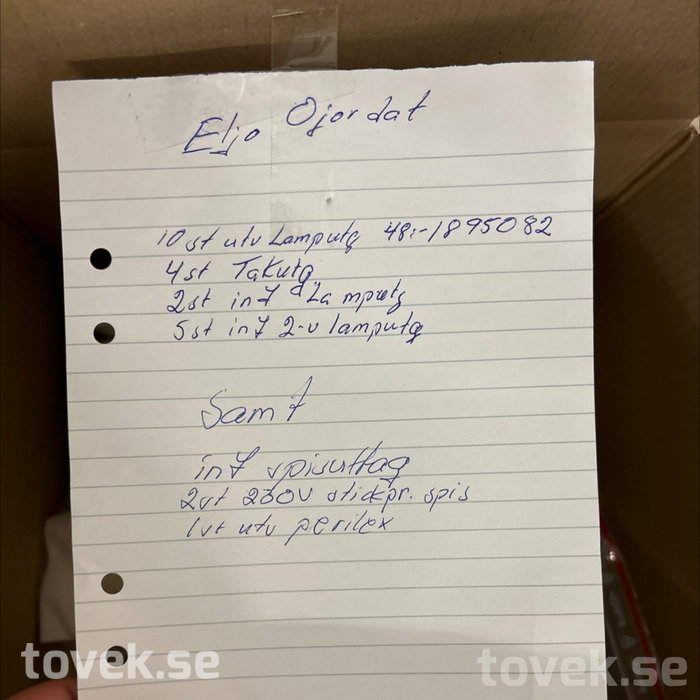 Eljo Ojordat
10 st utv Lamputg 48:- 1895082
4st Takutg
2st inf Lamputg
5st inf 2-v lamputg
Samt
inf spisuttag
2st 230V stickpr. spis
1st utv perilex
tovek.se
tovek.se